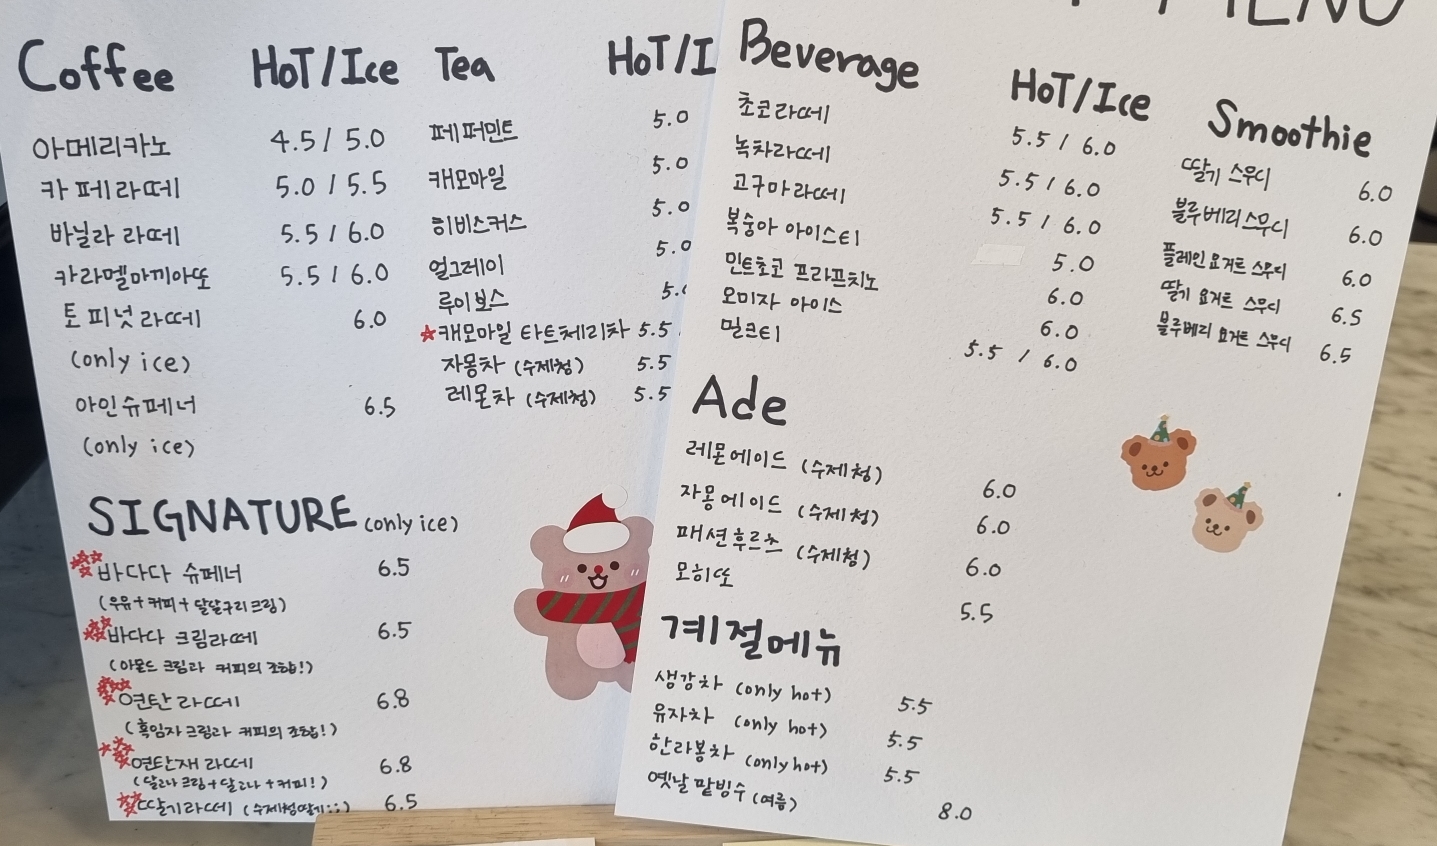 Coffee HoT/Ice
아메리카노 4.5 / 5.0
카페라떼 5.0 / 5.5
바닐라 라떼 5.5 / 6.0
카라멜마끼아또 5.5 / 6.0
토피넛라떼 6.0
(only ice)
아인슈페너 6.5
(only ice)
SIGNATURE (only ice)
바다다 슈페너 6.5
(우유+커피+달달구리크림)
바다다 크림라떼 6.5
(아몬드 크림과 커피의 조합!)
연탄라떼 6.8
(흑임자크림과 커피의 조합!)
연탄재 라떼 6.8
(달고나크림+달고나+커피!)
딸기라떼 (수제청딸기::) 6.5
Tea HoT/I
페퍼민트 5.0
캐모마일 5.0
히비스커스 5.0
얼그레이 5.0
루이보스 5.
★캐모마일 타트체리차 5.5
자몽차 (수제청) 5.5
레몬차 (수제청) 5.5
MENU
Beverage HoT/Ice
초코라떼 5.5 / 6.0
녹차라떼 5.5 / 6.0
고구마라떼 5.5 / 6.0
복숭아 아이스티 5.0
민트초코 프라프치노 6.0
오미자 아이스 6.0
밀크티 5.5 / 6.0
Ade
레몬에이드 (수제청) 6.0
자몽에이드 (수제청) 6.0
패션후르츠 (수제청) 6.0
모히또 5.5
계절메뉴
생강차 (only hot) 5.5
유자차 (only hot) 5.5
한라봉차 (only hot) 5.5
옛날 팥빙수 (여름) 8.0
Smoothie
딸기 스무디 6.0
블루베리스무디 6.0
플레인요거트 스무디 6.0
딸기 요거트 스무디 6.5
블루베리 요거트 스무디 6.5